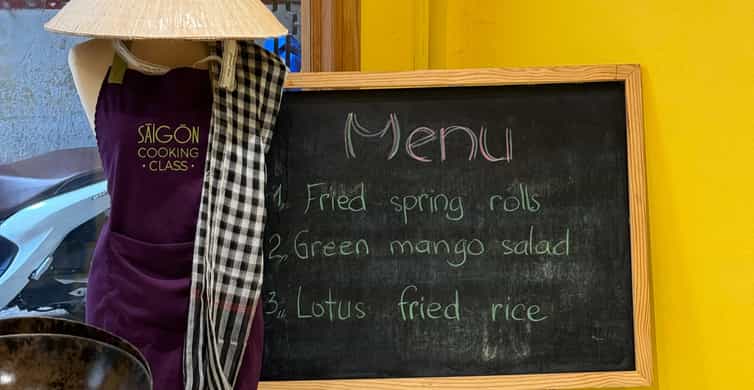 SAIGON
COOKING
• CLASS •
Menu
1. Fried spring rolls
2. Green mango salad
3. Lotus fried rice